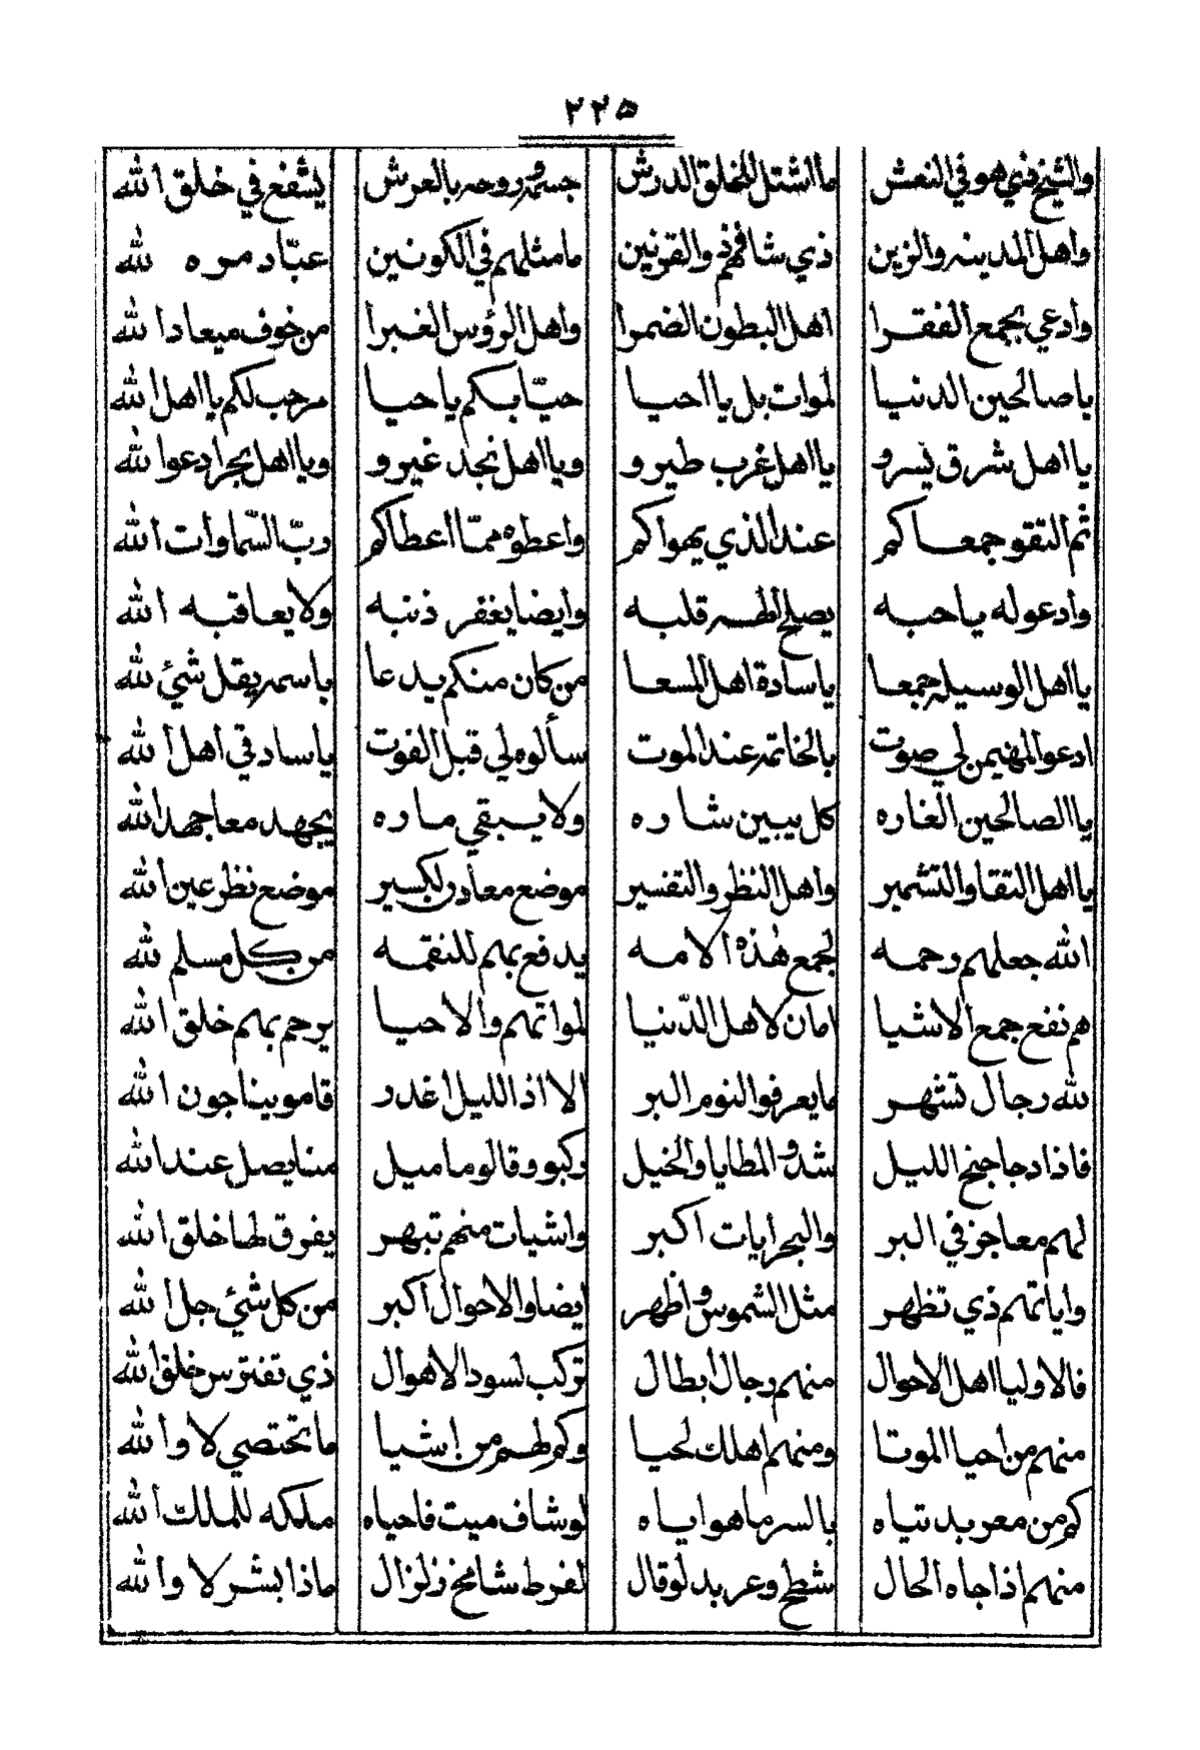 ٢٢٥
والشيخ ذي هو في النعش ما اشتل لمخلق الدرش جسمه وروحه بالعرش يشفع في خلق الله
واهل المدينه والزين ذي شافهم ذو القرنين ما مثلهم في الكونين عبّاد مره لله
وادعي بجمع الفقرا اهل البطون الضمرا واهل الرؤس الغبرا من خوف ميعاد الله
يا صالحين الدنيا لموات بل يا احيا حيّا بكم يا حيا مرحب لكم يا اهل الله
يا اهل شرق يسرو يا اهل غرب طيرو ويا اهل نجد غيرو ويا اهل بحر ادعوا لله
ثم التقو جمعا كم عند الذي يهواكم واعطوه ممّا اعطاكم ربّ السّماوات الله
وادعو له يا حبه يصلح الهه قلبه وايضا يغفر ذنبه ولا يعاقبه الله
يا اهل الوسيله جمعا يا سادة اهل المسعا من كان منكم يدعا باسمه يقل شئ لله
ادعو المهيمن لي صوت بالخاتمه عند الموت سألوه لي قبل الفوت يا سادتي اهل الله
يا الصالحين الغاره كل يبين شاره ولا يبقي ماره يجهد معا جهد الله
يا اهل التقا والتشمير واهل النظر والتفسير موضع معادن لكسير موضع نظر عين الله
الله جعلهم رحمه لجمع هذه الامه يدفع بهم للنقمه من كل مسلم لله
هم نفع جمع الاشيا امان لاهل الدّنيا لمواتهم والاحيا يرحم بهم خلق الله
لله رجال تشهر ما يعرفو النوم البر الا اذ الليل اغدر قامو يناجون الله
فاذا دجا جنح الليل شدو المطايا والخيل ركبو وقالو ما ميل منا يصل عند الله
لهم معاجز في البر والبحر ايات اكبر واشيات منهم تبهر يفرق لها خلق الله
واياتهم ذي تظهر مثل الشموس واظهر ايضا والاحوال اكبر من كل شئ جل الله
فالاوليا اهل الاحوال منهم رجال أبطال تركب لسود الاهوال ذي تفترس خلق الله
منهم من احيا الموتا ومنهم اهلك لحيا وكم لهم من اشيا ما تختصي لا والله
كم من معربد تياه بالسر ما هو اياه لو شاف ميت فاحياه ملكه للملك الله
منهم اذا جاه الحال شطح وعربد لو قال لفرط شامخ زلزال ماذا بشر لا والله